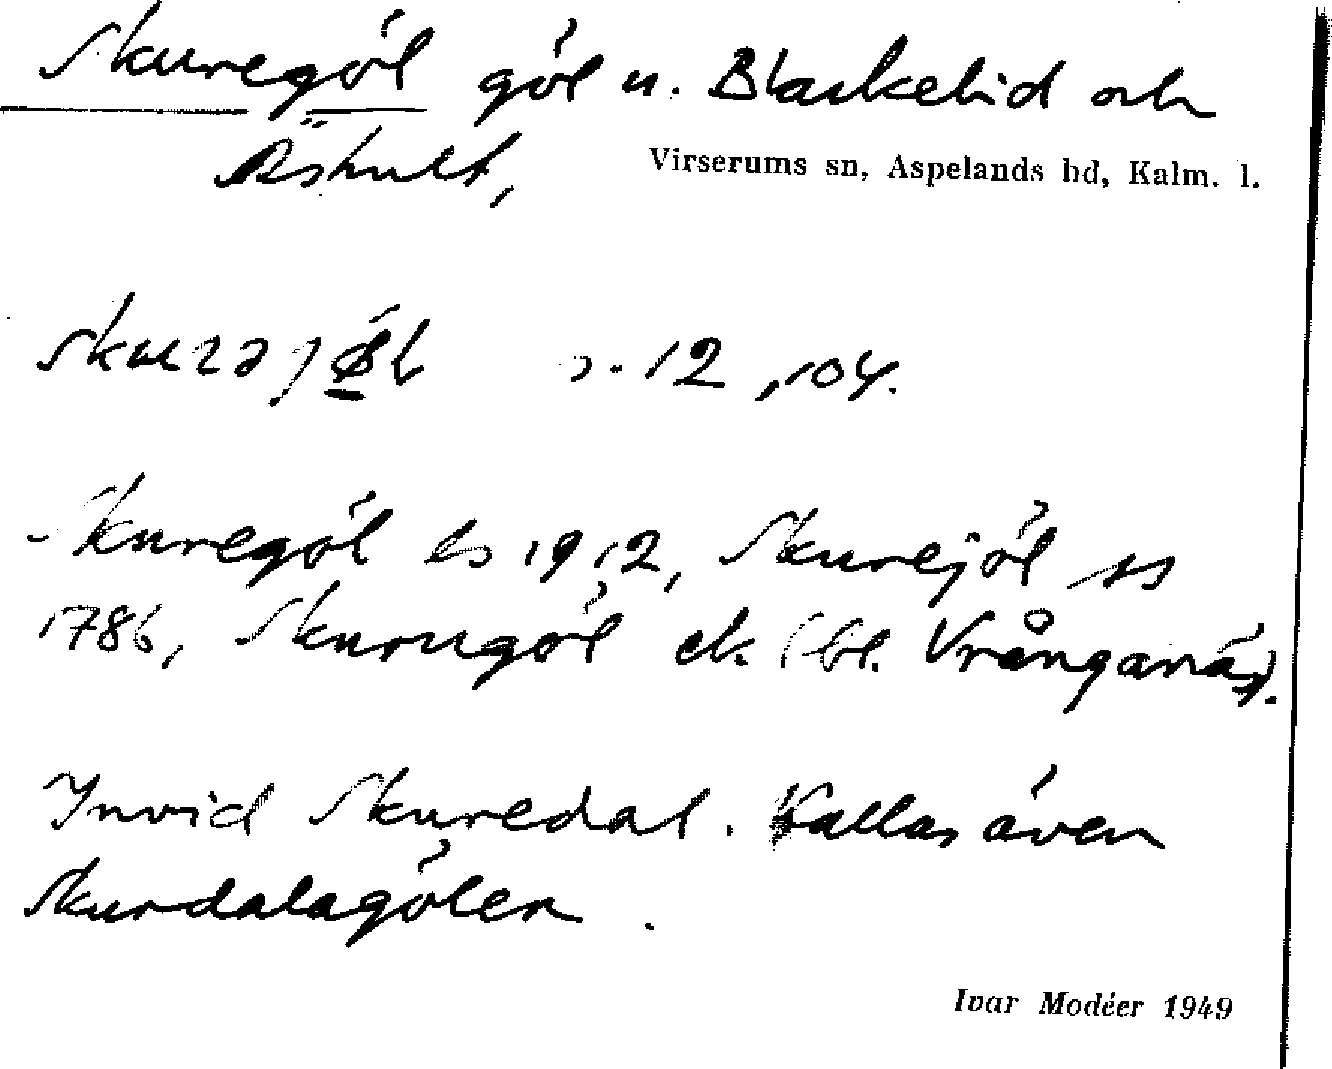 Skuregöl göl u. Blackelid och
Äshult,
Virserums sn, Aspelands hd, Kalm. l.
12, 104.
Skuregöl ls 1912, Skurejöl ss
1786, Skurugöl ek (bl. Vrånganäs).
Invid Skuredal. Kallas även
Skurdalagölen.
Ivar Modéer 1949